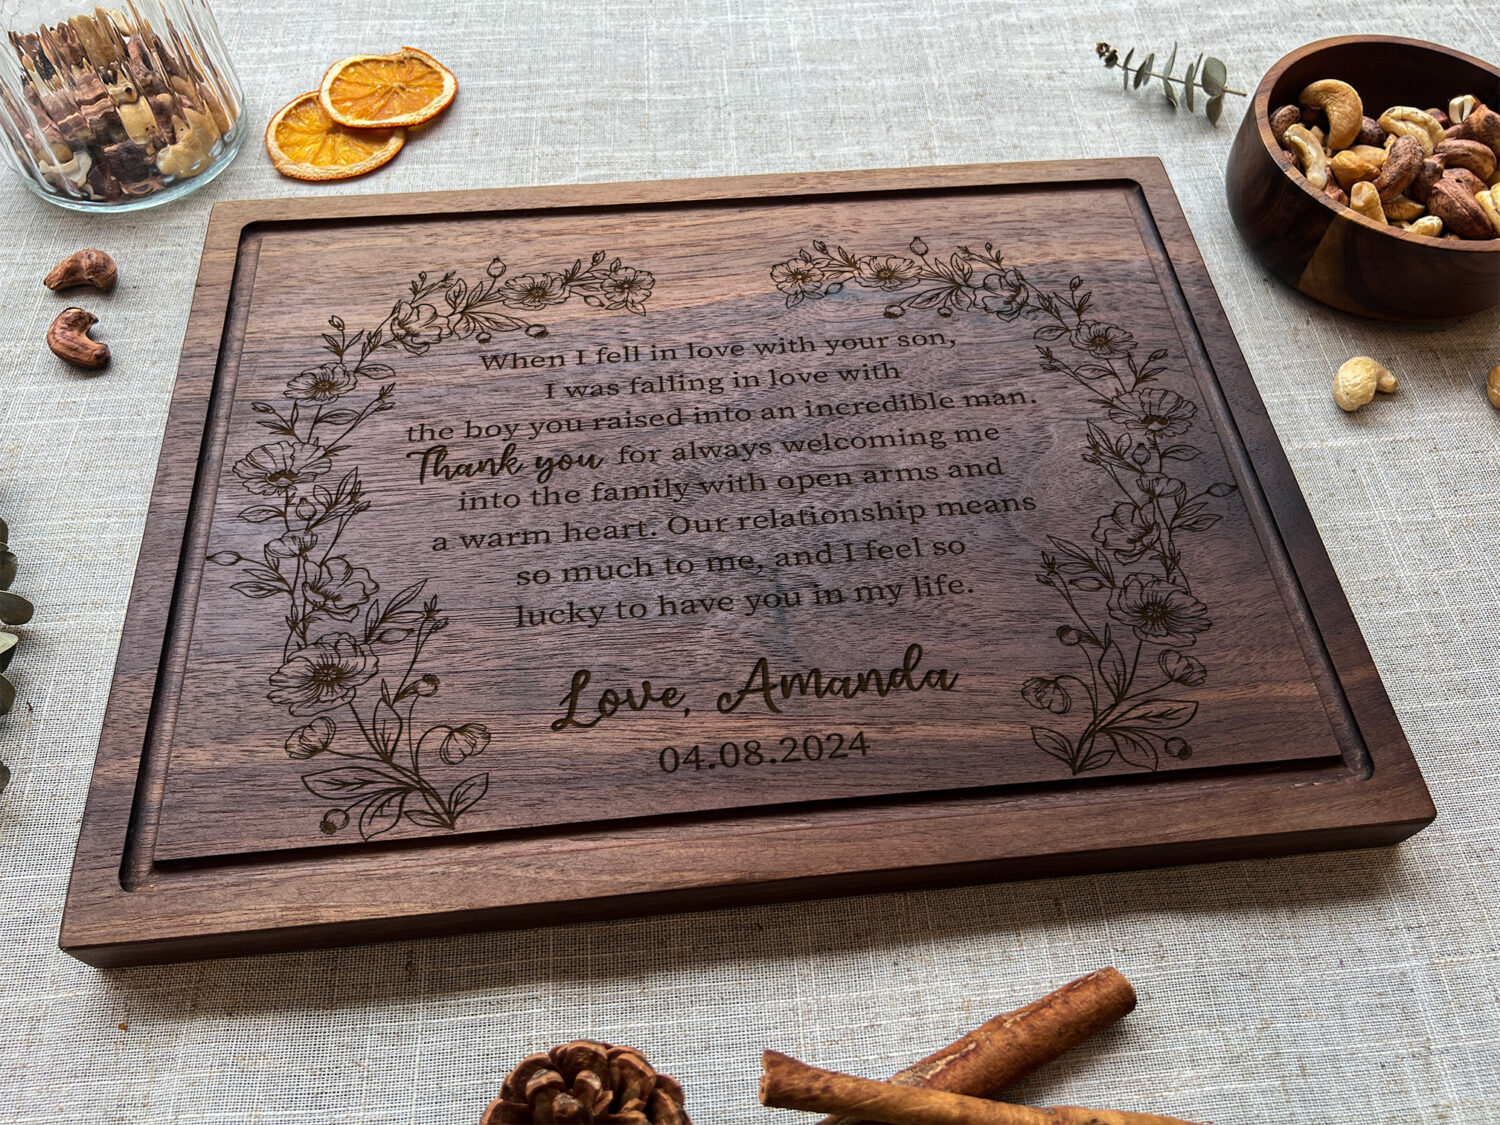 When I fell in love with your son,
I was falling in love with
the boy you raised into an incredible man.
Thank you for always welcoming me
into the family with open arms and
a warm heart. Our relationship means
so much to me, and I feel so
lucky to have you in my life.
Love, Amanda
04.08.2024